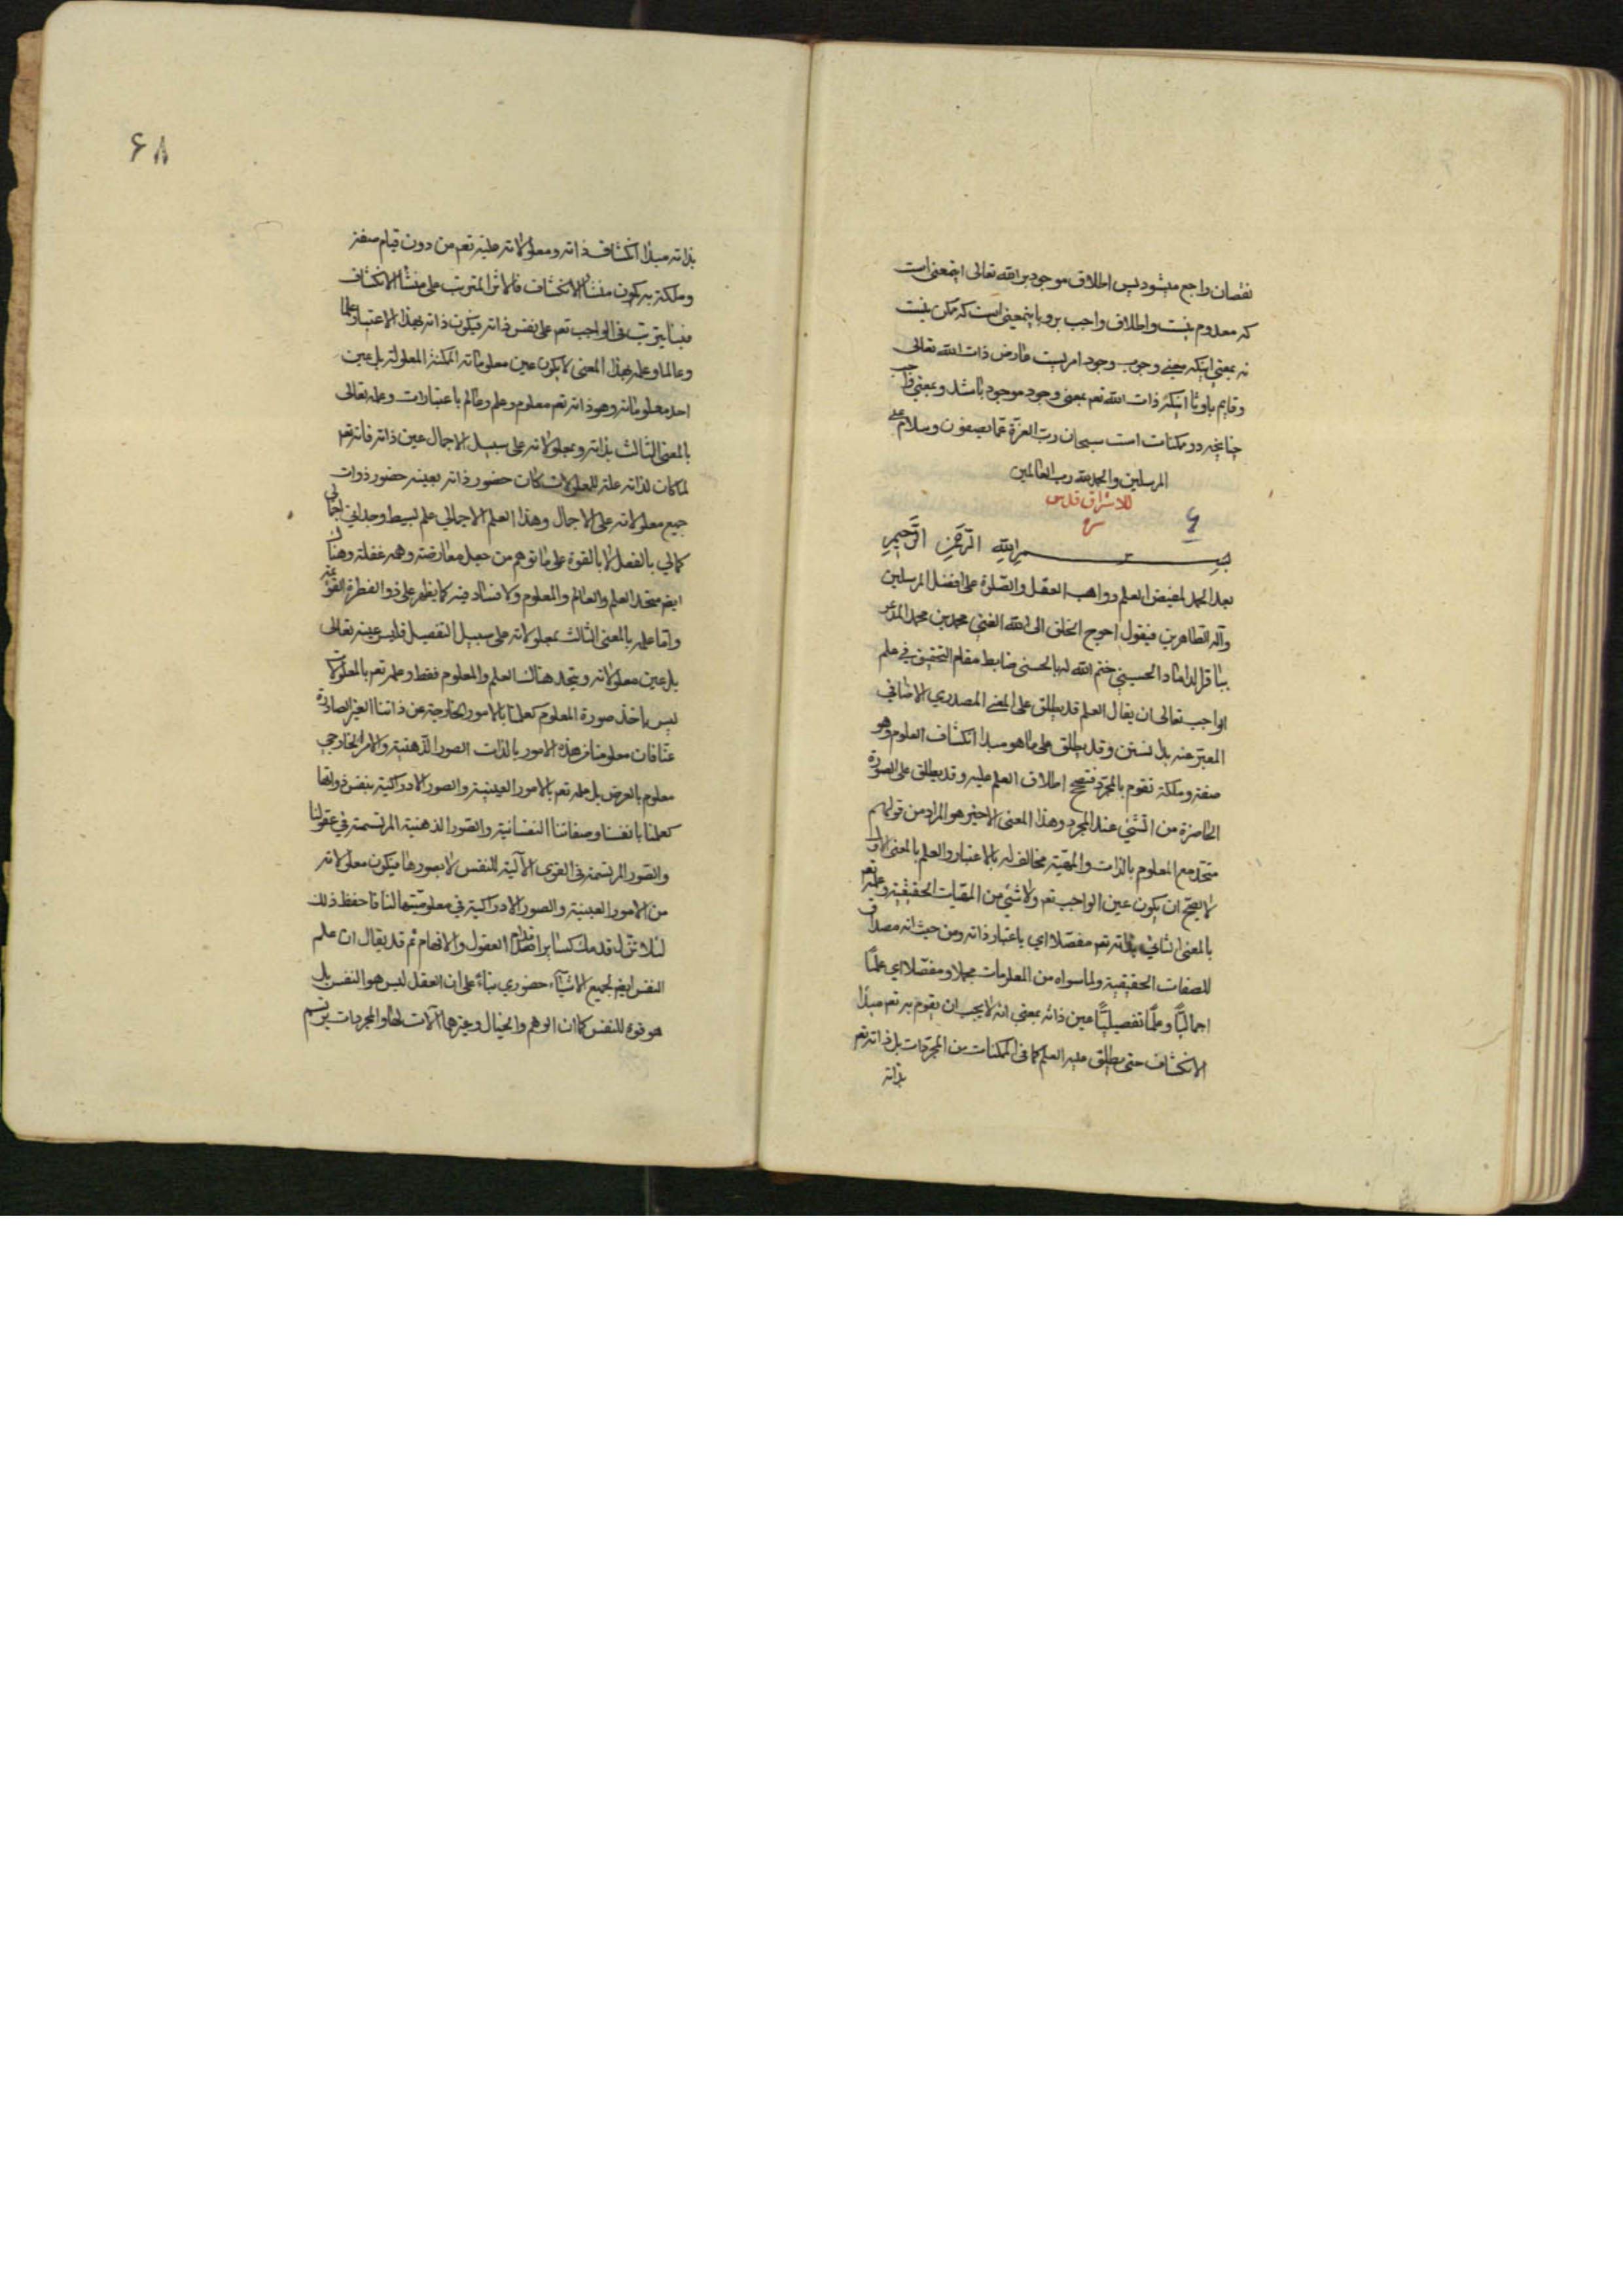 نقصان راجع میشود پس اطلاق موجود بر الله تعالی اینمعنی است
که معدوم نیست و اطلاق واجب برو باینمعنی است که ممکن نیست
نه بمعنی اینکه معنی وجوب وجود امریست عارض ذات الله تعالی
و قایم باو یا اینکه ذات الله تعم بمعنی وجود موجود باشد و بمعنی واجب
چنانچه در ممکنات است سبحان رب العزة عما یصفون و سلام علی
المرسلین والحمد لله رب العالمین
للاشراق قدس
سره
۶
بسم الله الرحمن الرحیم
بعد الحمد لمفیض العلم و واهب العقل والصلوة علی افضل المرسلین
وآله الطاهرین فیقول احوج الخلق الی الله الغنی محمد بن محمد المدعو
بباقر الداماد الحسینی ختم الله له بالحسنی ضابط مقام التحقیق فی علم
الواجب تعالی ان یقال العلم قد یطلق علی المعنی المصدری الاضافی
المعبر عنه بدانستن و قد یطلق علی ما هو مبدا انکشاف المعلوم وهو
صفة و ملکة تقوم بالمجرد فتصح اطلاق العلم علیه و قد یطلق علی الصورة
الحاضرة من الشئ عند المجرد وهذا المعنی الاخیر هو المراد من قولهم
متحد مع المعلوم بالذات والمهیة مخالف له بالاعتبار والعلم بالمعنی الاول
لا یصح ان یکون عین الواجب تعم ولا شئ من المهیات الحقیقیة وعلمه تعم
بالمعنی الثانی بذاته تعم مفصلا ای باعتبار ذاته ومن حیث انه مصداق
للصفات الحقیقیة ولما سواه من المعلومات مجملا و مفصلا ای علما
اجمالیا و علما تفصیلیا عین ذاته بمعنی انه لا یجب ان یقوم به تعم مبدا
الانکشاف حتی یطلق علیه العلم کما فی الممکنات من المجردات بل ذاته تعم
بذاته
۶۸
بذاته مبدا انکشاف ذاته و معلولاته علیه تعم من دون قیام صفة
وملکة به یکون منشأ الانکشاف فالاثر المترتب علی منشأ الانکشاف
فینا یترتب فی الواجب تعم علی نفس ذاته فیکون ذاته بهذا الاعتبار علما
وعالما وعلمه بهذا المعنی لا یکون عین معلوماته الممکنة المعلولة بل عین
احد معلوماته وهو ذاته تعم معلوم وعلم وعالم باعتبارات وعلمه تعالی
بالمعنی الثالث بذاته و بمعلولاته علی سبیل الاجمال عین ذاته فانه تعم
لما کان لذاته علة للمعلولات کان حضور ذاته بعینه حضور ذوات
جمیع معلولاته علی الاجمال وهذا العلم الاجمالی علم بسیط وحدانی اجمالی
کمالی بالفعل لا بالقوة علی ما توهم من جعل معارضته وهمه غفلة وهناک
ایضم متحد العلم والعالم والمعلوم ولا فساد فیه کما یظهر علی ذو الفطرة القویمة
واما علمه بالمعنی الثالث بمعلولاته علی سبیل التفصیل فلیس عینه تعالی
بل عین معلولاته ویتحد هناک العلم والمعلوم فقط وعلمه تعم بالمعلولات
لیس باخذ صورة المعلوم کعلمنا بالامور الخارجة عن ذاتنا الغیر الصادرة
عنا فان معلومنا من هذه الامور بالذات الصور الذهنیة والامر الخارجی
معلوم بالعرض بل علمه تعم بالامور العینیة والصور الادراکیة بنفس ذواتها
کعلمنا بانفسنا و صفاتنا النفسانیة والصور الذهنیة المرتسمة فی عقولنا
والصور المرتسمة فی القوی الآلیة للنفس لا بصورها فیکون معلولاته
من الامور العینیة والصور الادراکیة فی معلومیتها لنا فاحفظ ذلک
لئلا تزل قدمک کسایر اقدام العقول والافهام ثم قد یقال ان علم
النفس ایضم لجمیع الاشیاء حضوری بناء علی ان العقل لیس هو النفس بل
هو قوة للنفس کما ان الوهم والخیال وغیرهما آلات لها والمجردات یرتسم